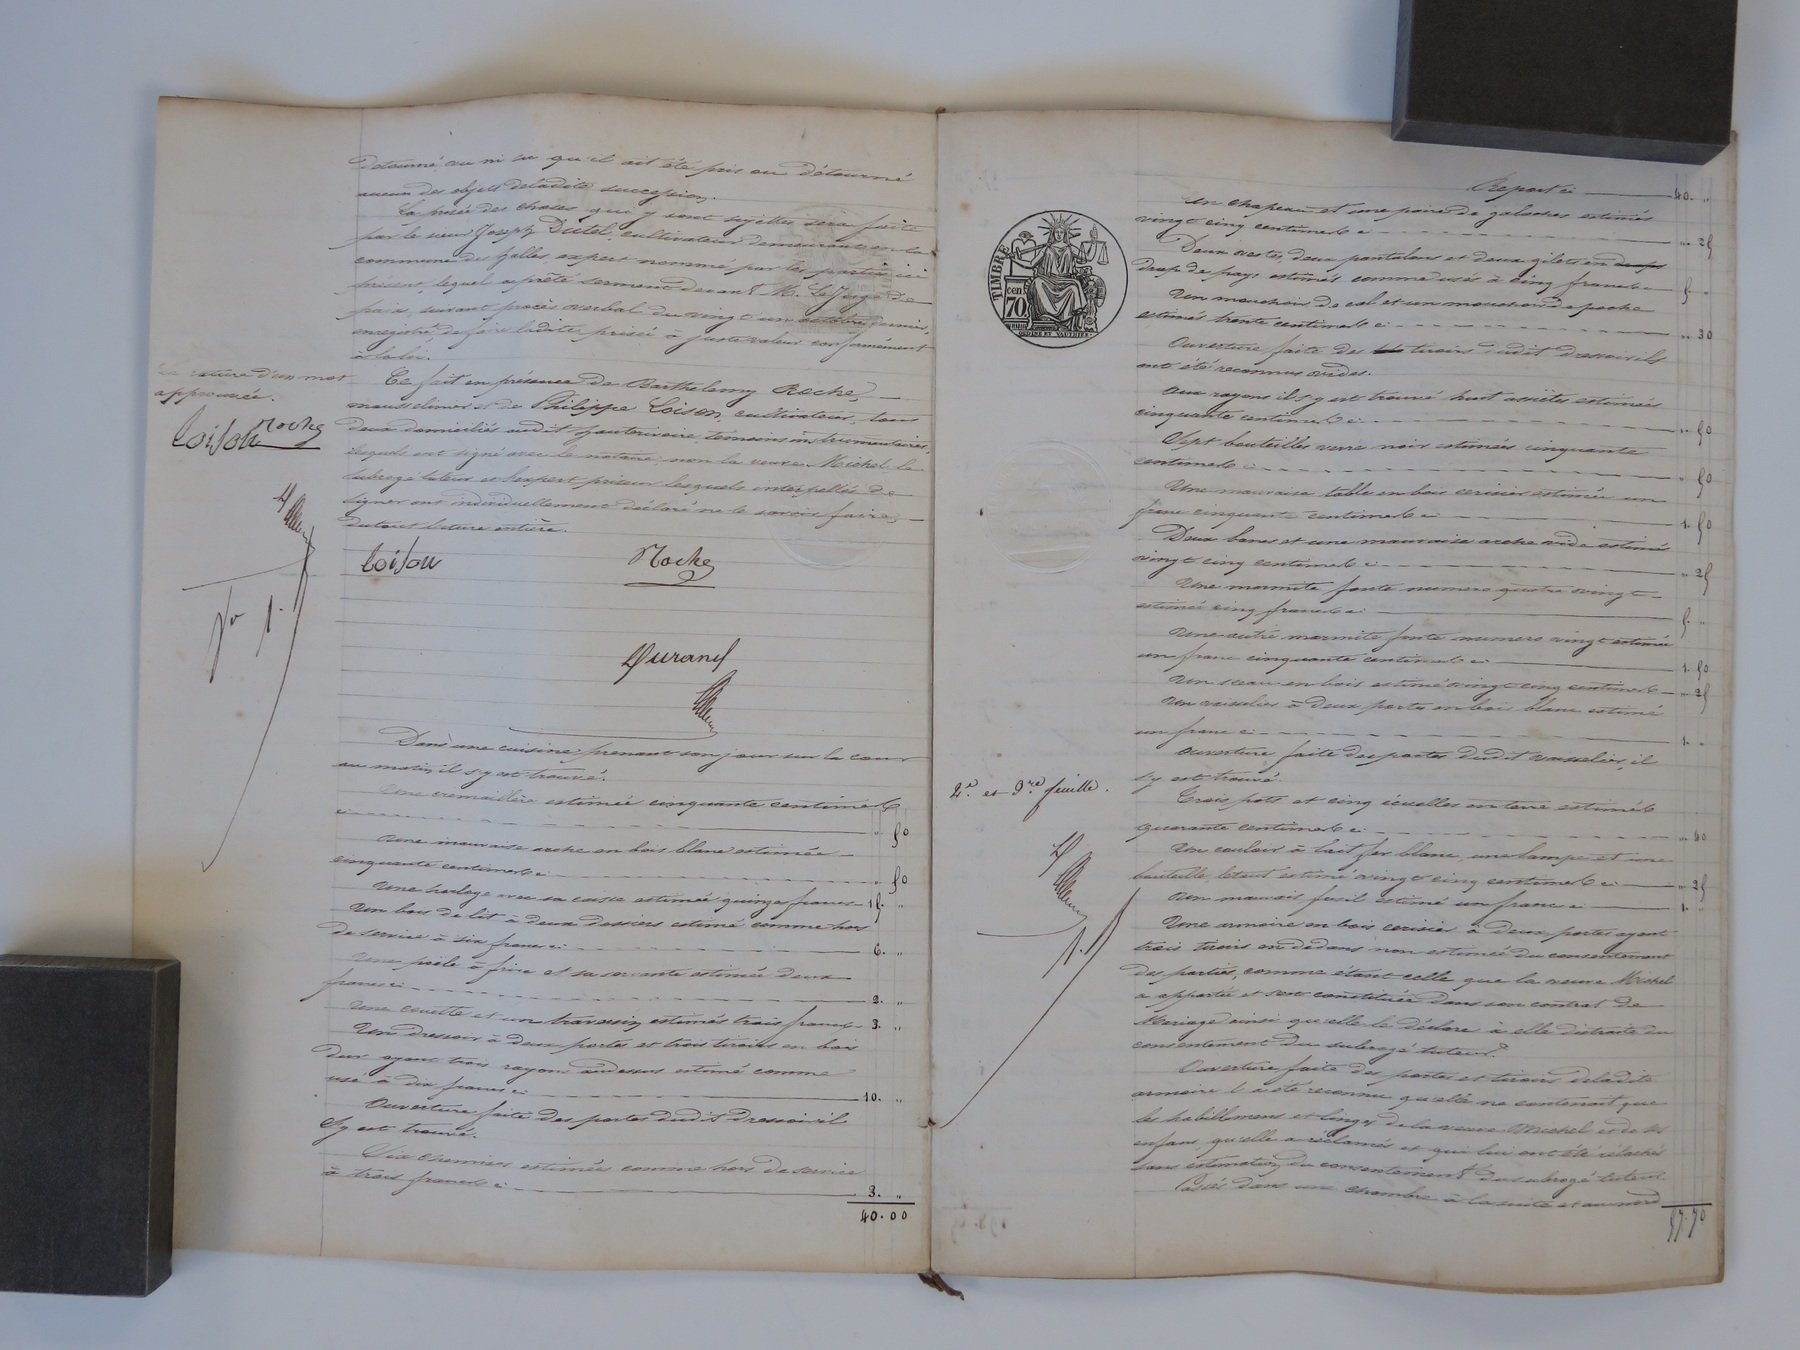 détourné, vu ni su qu'il ait été pris ou détourné
aucun des objets de ladite succession.
La prisée des choses qui y sont sujettes sera faite
par le sieur Joseph Dutel, cultivateur demeurant en la
commune des Halles, expert nommé par les parties ici
présent, lequel a prêté serment devant M. Le Juge de
paix, suivant procès verbal du vingt un octobre dernier,
enregistré de faire ladite prisée à juste valeur conformément
à la loi.
Ce fait en présence de Barthelemy Roche,
mousselinier et de Philippe Loison, cultivateur, tous
deux domiciliés audit hauterivoire, témoins instrumentaires,
lesquels ont signé avec le notaire, non la veuve Michel le
subrogé tuteur et l'expert priseur lesquels interpellés de
signer ont individuellement déclaré ne le savoir faire,
du tout lecture entière.
La rature d'un mot
approuvée.
Loison Roche
Loison Roche
Durand
Dans une cuisine prenant son jour sur la cour
au matin, il s'y est trouvé.
Une cremaillère estimée cinquante centimes
ci „ 50
Une mauvaise arche en bois blanc estimée
cinquante centimes ci „ 50
Une horloge avec sa caisse estimée quinze francs 15. „
Un bois de lit à deux dossiers estimé comme hors
de service à six francs ci 6. „
Une poêle à frire et sa servante estimée deux
francs ci 2. „
Une couette et un traversin estimés trois francs 3. „
Un dressoir à deux portes et trois tiroirs en bois
dur ayant trois rayons au dessus estimé comme
usé à dix francs ci 10. „
Ouverture faite des portes dudit dressoir il
s'y est trouvé.
Six chemises estimées comme hors de service
à trois francs ci 3. „
40.00
Report ci 40. „
TIMBRE
cen 70
Un chapeau et une paire de galoches estimés
vingt cinq centimes ci „ 25
Deux vestes, deux pantalons et deux gilets en drap
drap de pays estimés comme usés à cinq francs 5 „
Un mouchoir de col et un mouchoir de poche
estimés trente centimes ci „ 30
Ouverture faite des tiroirs dudit dressoir ils
ont été reconnus vides.
Aux rayons il s'y est trouvé huit assiettes estimées
cinquante centimes ci „ 50
Sept bouteilles verre noir estimées cinquante
centimes ci „ 50
Une mauvaise table en bois cerisier estimée un
franc cinquante centimes ci 1. 50
Deux bancs et une mauvaise arche vide estimés
vingt cinq centimes ci „ 25
Une marmite fonte numero quatre vingt
estimée cinq francs ci 5. „
Une autre marmite fonte numero vingt estimée
un franc cinquante centimes ci 1. 50
Un seau en bois estimé vingt cinq centimes „ 25
Un vaisselier à deux portes en bois blanc estimé
un franc ci 1. „
Ouverture faite des portes dudit vaisselier, il
s'y est trouvé
2e. et 3re feuille.
Trois pots et cinq écuelles en terre estimés
quarante centimes ci „ 40
Un couloir à lait fer blanc, une lampe et une
bouteille, le tout estimé vingt cinq centimes ci „ 25
Un mauvais fusil estimé un franc ci 1. „
Une armoire en bois cerisier à deux portes ayant
trois tiroirs en dedans non estimée du consentement
des parties, comme étant celle que la veuve Michel
a apportée et s'est constituée dans son contrat de
Mariage ainsi qu'elle le déclare à elle distraite du
consentement du subrogé tuteur.
Ouverture faite des portes et tiroirs de ladite
armoire il a été reconnu qu'elle ne contenait que
les habillemens et linges de la veuve Michel et de ses
enfans, qu'elle a réclamés et qui lui ont été relachés
sans estimation du consentement du subrogé tuteur.
Passés dans une chambre à la suite et au nord
57.70